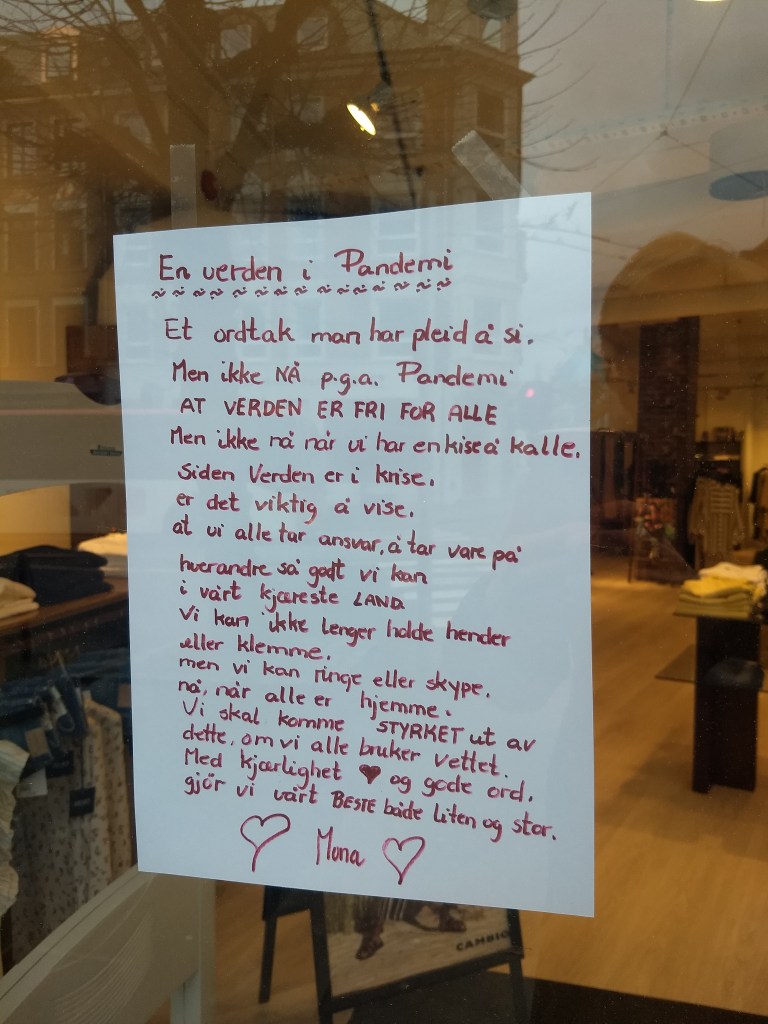 En verden i Pandemi
Et ordtak man har pleid å si.
Men ikke NÅ p.g.a. Pandemi
AT VERDEN ER FRI FOR ALLE
Men ikke nå når vi har en kise å kalle.
Siden Verden er i krise.
er det viktig å vise.
at vi alle tar ansvar, å tar vare på
hverandre så godt vi kan
i vårt kjæreste LAND
Vi kan ikke lenger holde hender
eller klemme.
men vi kan ringe eller skype.
nå, når alle er hjemme.
Vi skal komme STYRKET ut av
dette, om vi alle bruker vettet.
Med kjærlighet ♥ og gode ord.
gjör vi vårt BESTE både liten og stor.
♡ Mona ♡
CAMBIO